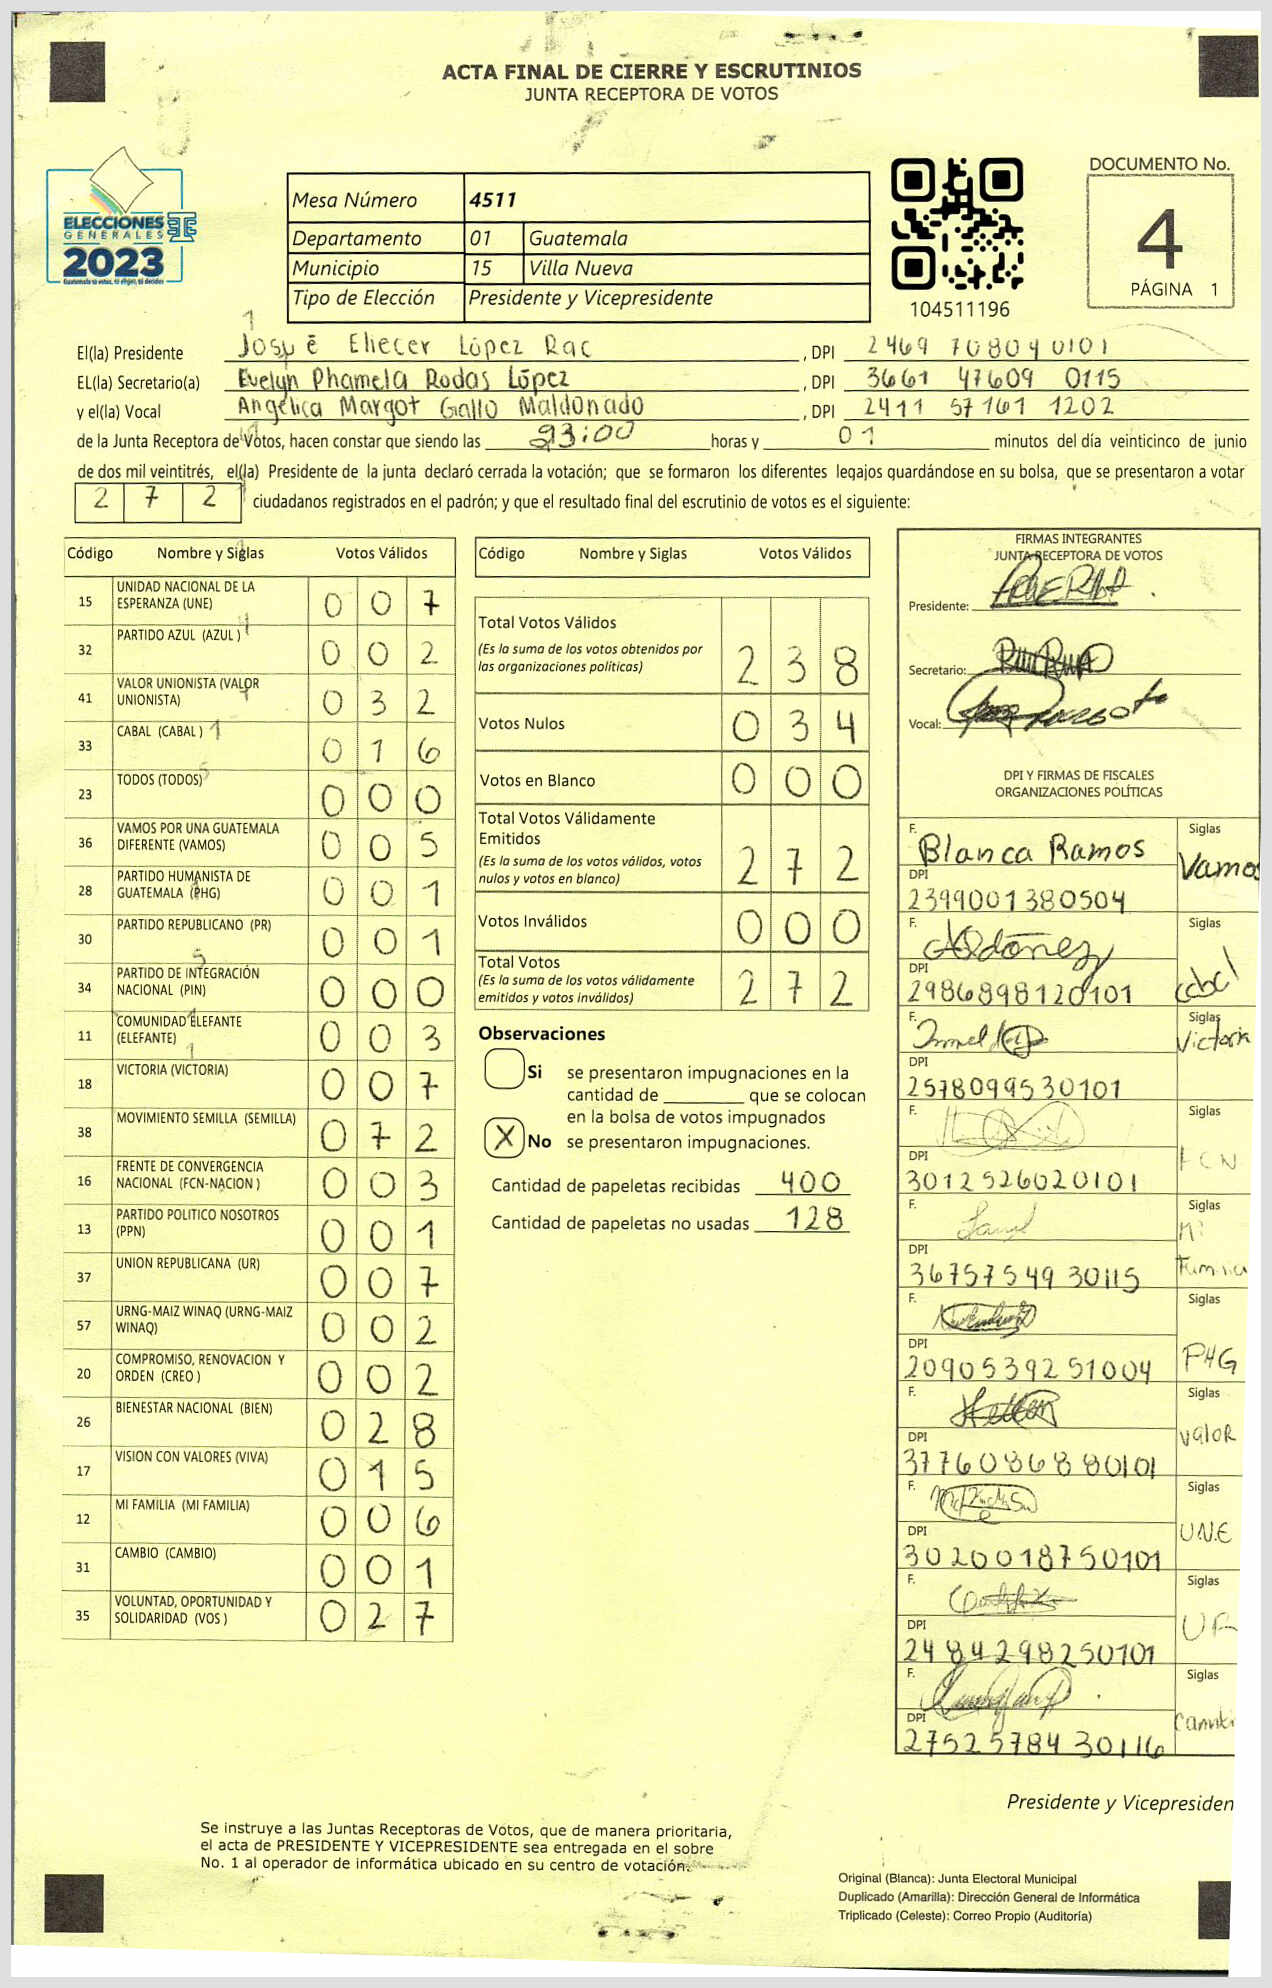 ACTA FINAL DE CIERRE Y ESCRUTINIOS
JUNTA RECEPTORA DE VOTOS
ELECCIONES
GENERALES
2023
Mesa Número 4511
Departamento 01 Guatemala
Municipio 15 Villa Nueva
Tipo de Elección Presidente y Vicepresidente
104511196
DOCUMENTO No.
4
PÁGINA 1
El(la) Presidente Josué Eliecer López Rac , DPI 2469 70804 0101
EL(la) Secretario(a) Evelyn Phamela Rodas López , DPI 3661 47609 0115
y el(la) Vocal Angélica Margot Gallo Maldonado , DPI 2411 57161 1202
de la Junta Receptora de Votos, hacen constar que siendo las 23:00 horas y 01 minutos del día veinticinco de junio
de dos mil veintitrés, el(la) Presidente de la junta declaró cerrada la votación; que se formaron los diferentes legajos guardándose en su bolsa, que se presentaron a votar
2 7 2 ciudadanos registrados en el padrón; y que el resultado final del escrutinio de votos es el siguiente:
Código Nombre y Siglas Votos Válidos
15 UNIDAD NACIONAL DE LA ESPERANZA (UNE) 0 0 7
32 PARTIDO AZUL (AZUL ) 0 0 2
41 VALOR UNIONISTA (VALOR UNIONISTA) 0 3 2
33 CABAL (CABAL ) 0 1 6
23 TODOS (TODOS) 0 0 0
36 VAMOS POR UNA GUATEMALA DIFERENTE (VAMOS) 0 0 5
28 PARTIDO HUMANISTA DE GUATEMALA (PHG) 0 0 1
30 PARTIDO REPUBLICANO (PR) 0 0 1
34 PARTIDO DE INTEGRACIÓN NACIONAL (PIN) 0 0 0
11 COMUNIDAD ELEFANTE (ELEFANTE) 0 0 3
18 VICTORIA (VICTORIA) 0 0 7
38 MOVIMIENTO SEMILLA (SEMILLA) 0 7 2
16 FRENTE DE CONVERGENCIA NACIONAL (FCN-NACION ) 0 0 3
13 PARTIDO POLITICO NOSOTROS (PPN) 0 0 1
37 UNION REPUBLICANA (UR) 0 0 7
57 URNG-MAIZ WINAQ (URNG-MAIZ WINAQ) 0 0 2
20 COMPROMISO, RENOVACION Y ORDEN (CREO ) 0 0 2
26 BIENESTAR NACIONAL (BIEN) 0 2 8
17 VISION CON VALORES (VIVA) 0 1 5
12 MI FAMILIA (MI FAMILIA) 0 0 6
31 CAMBIO (CAMBIO) 0 0 1
35 VOLUNTAD, OPORTUNIDAD Y SOLIDARIDAD (VOS ) 0 2 7
Código Nombre y Siglas Votos Válidos
Total Votos Válidos
(Es la suma de los votos obtenidos por
las organizaciones políticas) 2 3 8
Votos Nulos 0 3 4
Votos en Blanco 0 0 0
Total Votos Válidamente
Emitidos
(Es la suma de los votos válidos, votos
nulos y votos en blanco) 2 7 2
Votos Inválidos 0 0 0
Total Votos
(Es la suma de los votos válidamente
emitidos y votos inválidos) 2 7 2
Observaciones
Si se presentaron impugnaciones en la
cantidad de ________ que se colocan
en la bolsa de votos impugnados
X No se presentaron impugnaciones.
Cantidad de papeletas recibidas 400
Cantidad de papeletas no usadas 128
FIRMAS INTEGRANTES
JUNTA RECEPTORA DE VOTOS
Presidente:
Secretario:
Vocal:
DPI Y FIRMAS DE FISCALES
ORGANIZACIONES POLÍTICAS
F. Blanca Ramos Siglas Vamos
DPI 2399001380504
F. Ordóñez Siglas cabal
DPI 2986898120101
F. Siglas Victoria
DPI 2578099530101
F. Siglas FCN
DPI 3012526020101
F. Siglas Mi Familia
DPI 3675754930115
F. Siglas PHG
DPI 2090539251004
F. Siglas Valor
DPI 3776086880101
F. Siglas UNE
DPI 3020018750101
F. Siglas UR
DPI 2484298250101
F. Siglas Cambio
DPI 2752578430116
Presidente y Vicepresiden
Se instruye a las Juntas Receptoras de Votos, que de manera prioritaria,
el acta de PRESIDENTE Y VICEPRESIDENTE sea entregada en el sobre
No. 1 al operador de informática ubicado en su centro de votación.
Original (Blanca): Junta Electoral Municipal
Duplicado (Amarilla): Dirección General de Informática
Triplicado (Celeste): Correo Propio (Auditoría)